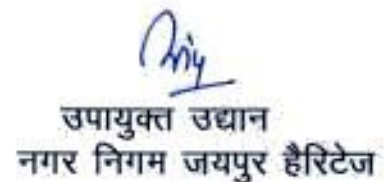 उपायुक्त उद्यान
नगर निगम जयपुर हैरिटेज